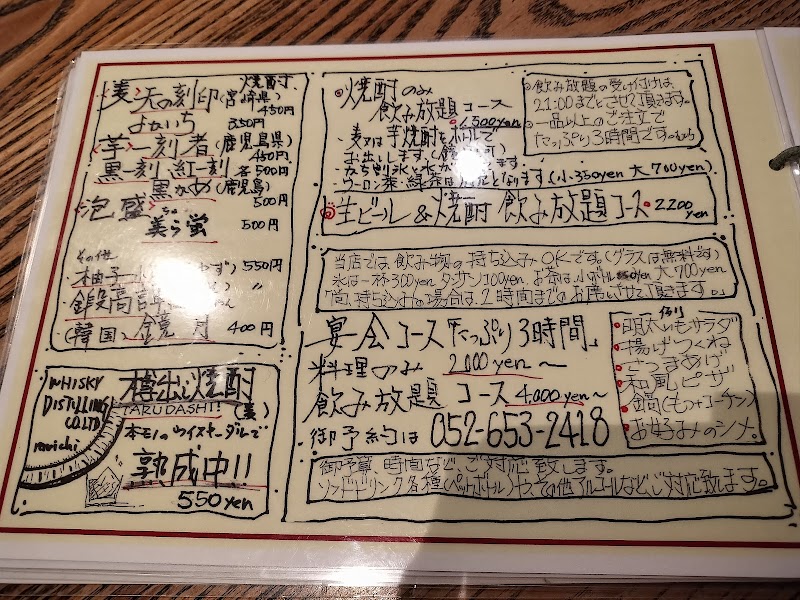 焼酎
麦 天の刻印(宮崎県)
450円
よかいち 350円
芋 一刻者(鹿児島県)
450円
黒一刻、紅一刻 各500円
黒かめ(鹿児島)
500円
泡盛
美ら蛍 500円
その他
柚子小 550円
鍛高
(韓国) 鏡月 400円
WHISKY
DISTILLING
CO.LTD.
樽出し焼酎
TARUDASHI! (麦)
本モノのウイスキーダルで
熟成中!!
550yen
焼酎のみ
飲み放題コース
1,500yen
麦又は芋焼酎をボトルで
お出しします。
ウーロン茶・緑茶は となります(小350yen 大700yen)
飲み放題の受け付けは、
21:00までとさせて頂きます。
一品以上のご注文で
たっぷり3時間です。
生ビール&焼酎 飲み放題コース 2,200yen
当店では、飲み物の持ち込みOKです。(グラスは無料です)
氷は一杯300yen タンサン100yen、お茶は、小ボトル 大700yen
尚、持ち込みの場合は、2時間までのお席とさせて頂きます。
宴会コース「たっぷり3時間」
料理のみ 2,000yen〜
飲み放題コース 4,000yen〜
御予約は 052-653-2418
例)
明太いもサラダ
揚げつくね
さつまあげ
和風ピザ
鍋(もつ+コーチン)
お好みのシメ
御予算、時間など、ご対応致します。
ソフトドリンク各種(ペットボトル)や、その他アルコールなど、ご対応致します。